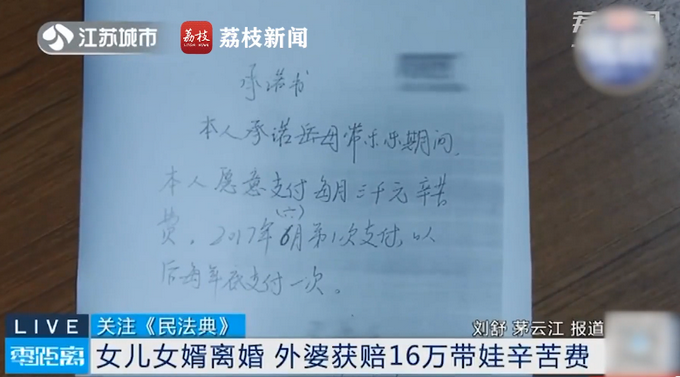 江苏城市
荔枝
LITCHI NEWS
荔枝新闻
承诺书
本人承诺岳母带乐乐期间,
本人愿意支付每月三千元辛苦
(六)
费,2017年6月第1次支付,以
后每年底支付一次。
LIVE
关注《民法典》
刘舒 茅云江 报道
零距离
女儿女婿离婚 外婆获赔16万带娃辛苦费